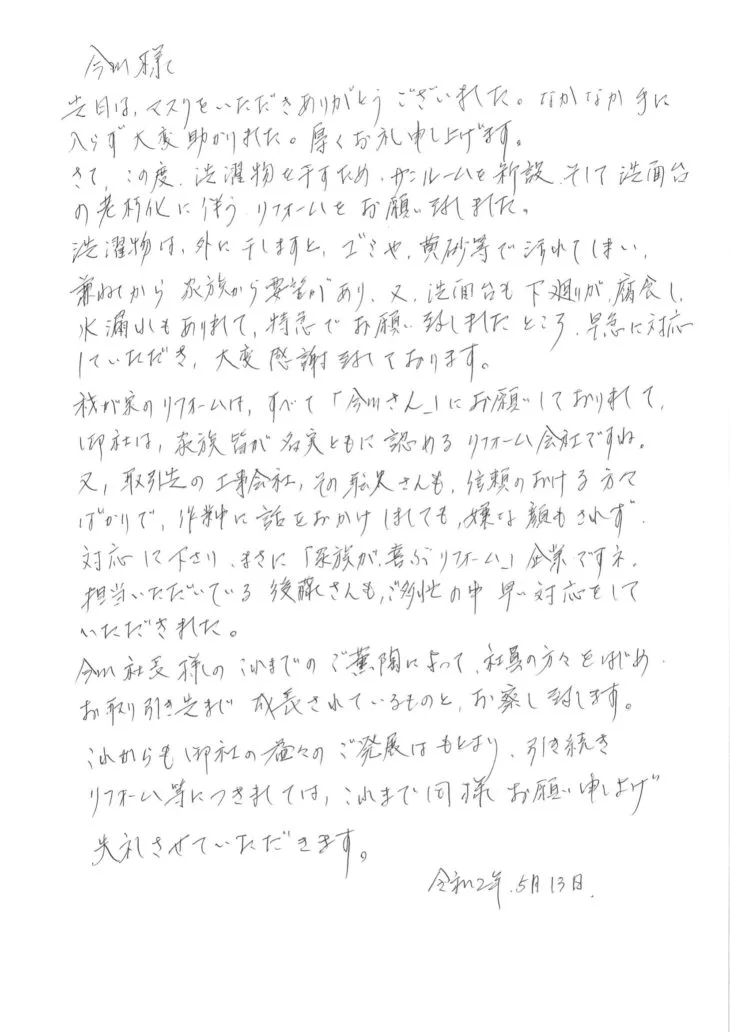 今川様
先日は、マスクをいただきありがとうございました。なかなか手に
入らず大変助かりました。厚くお礼申し上げます。
さて、この度、洗濯物を干すため、サンルームを新設、そして洗面台
の老朽化に伴うリフォームをお願い致しました。
洗濯物は、外に干しますと、ゴミや、黄砂等で汚れてしまい、
兼ねてから家族から要望があり、又、洗面台も下廻りが腐食し、
水漏れもありまして、特急でお願い致しましたところ、早急に対応
していただき、大変感謝致しております。
我が家のリフォームは、すべて「今川さん」にお願いしておりまして、
御社は、家族皆が名実ともに認めるリフォーム会社ですね。
又、取引先の工事会社、その職人さんも、信頼のおける方々
ばかりで、作業中に話をおかけしましても、嫌な顔もされず、
対応して下さり、まさに「家族が喜ぶリフォーム」企業ですネ。
担当いただいている後藤さんも、ご多忙の中早い対応をして
いただきました。
今川社長様のこれまでのご薫陶によって、社員の方々をはじめ、
お取り引き先まで成長されているものと、お察し致します。
これからも御社の益々のご発展はもとより、引き続き
リフォーム等につきましては、これまで同様お願い申し上げ
失礼させていただきます。
令和2年.5月13日.